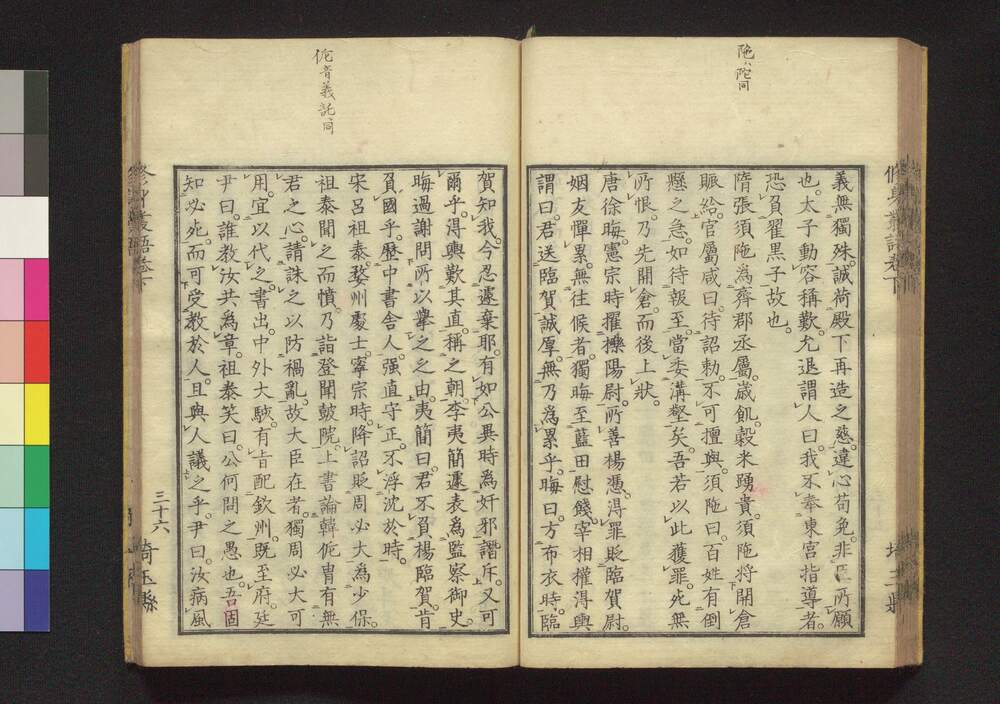 陁ハ陀同
義無獨殊。誠荷殿下再造之慈。違心苟免。非臣所願
也。太子動容稱歎。允退謂人曰。我不奉東宮指導者。
恐負翟黒子故也。
隋張須陁為齊郡丞屬歳飢。穀米踴貴。須陁将開倉
賑給。官屬咸曰。待詔勅。不可擅與。須陁曰。百姓有倒
懸之急。如待報至。當委溝壑矣。吾若以此獲罪。死無
所恨。乃先開倉。而後上狀。
唐徐晦。憲宗時擢櫟陽尉。所善楊憑。得罪貶臨賀尉。
姻友憚累。無往候者。獨晦至藍田慰餞。宰相權得輿
謂曰。君送臨賀誠厚。無乃為累乎。晦曰。方布衣時。臨
修身叢語卷下
埼玉縣
侂音義託同
賀知我。今忍遽棄耶。有如公異時為奸邪譖斥。又可
爾乎。得輿歎其直。稱之朝。李夷簡遽表為監察御史。
晦過謝問所以擧之之由。夷簡曰。君不負楊臨賀。肯
負國乎。歴中書舎人。强直守正。不浮沈於時。
宋呂祖泰。婺州處士。寧宗時。降詔貶周必大為少保。
祖泰聞之而憤。乃詣登聞皷院。上書論韓侂冑有無
君之心。請誅之以防禍亂。故大臣在者。獨周必大可
用。宜以代之。書出。中外大駭。有旨配欽州。既至府。廷
尹曰。誰教汝共為章。祖泰笑曰。公何問之愚也。吾固
知必死。而可受教於人。且與人議之乎。尹曰。汝病風
修身叢語卷下
三十六
埼玉縣